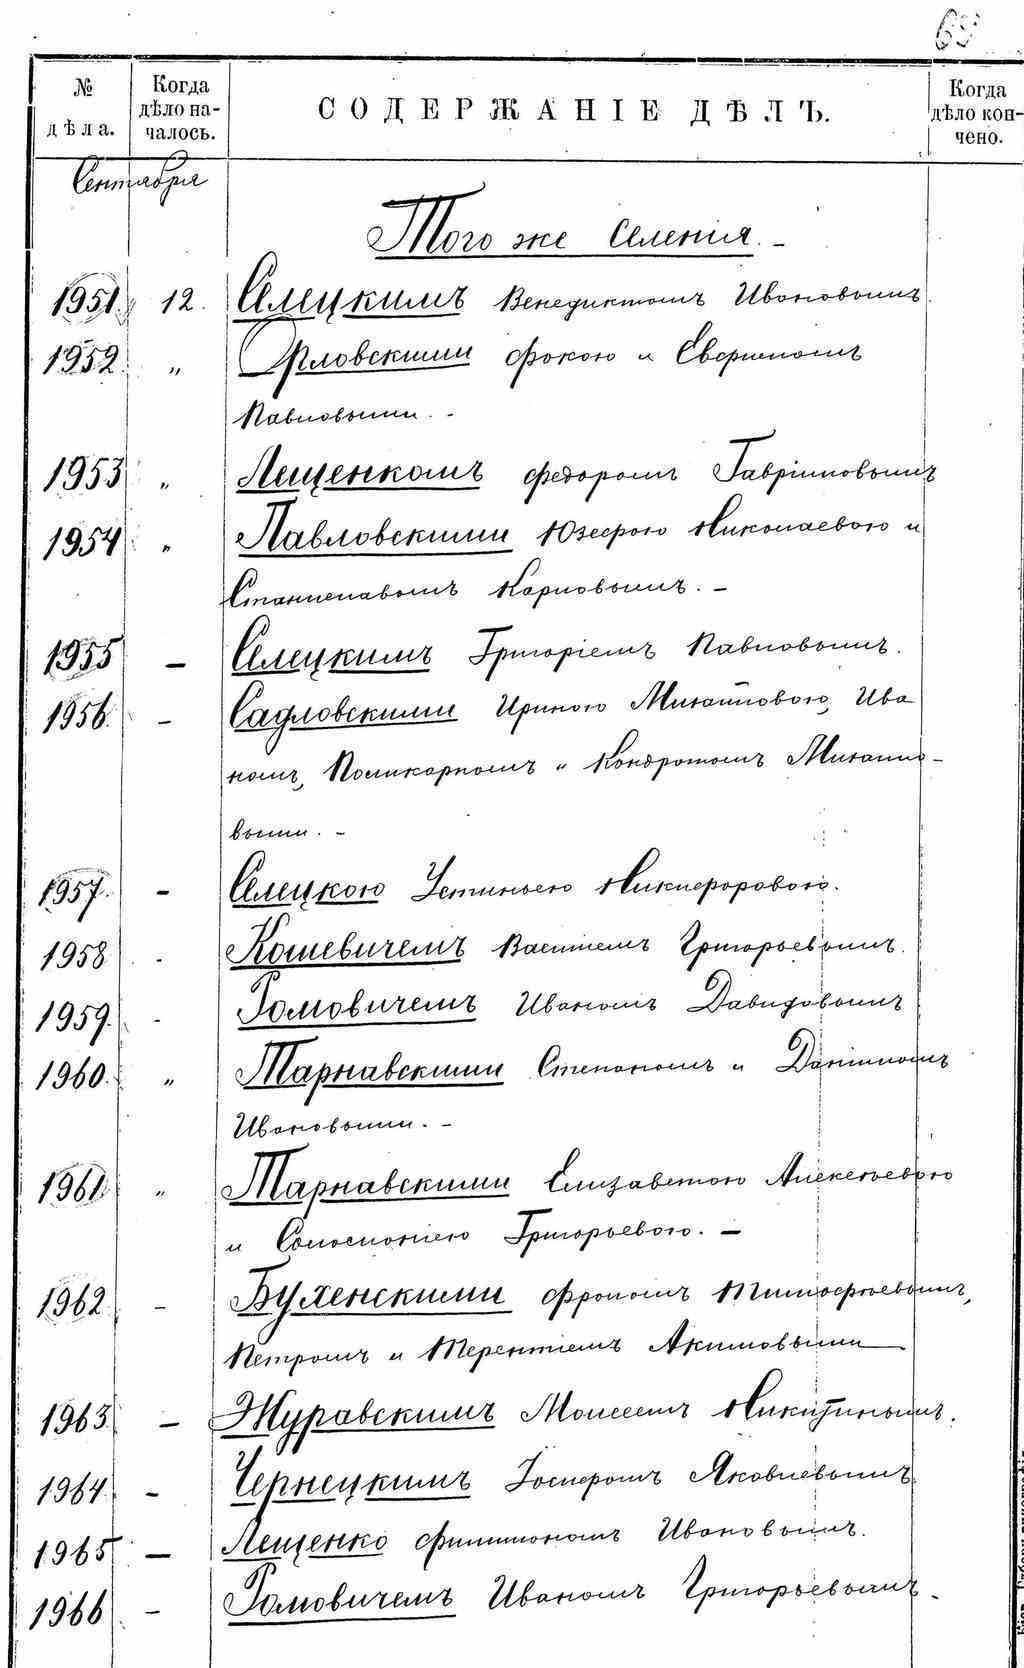 69
№ дѣла.
Когда дѣло началось.
СОДЕРЖАНІЕ ДѢЛЪ.
Когда дѣло кончено.
Сентября
Того же селенія. -
1951. 12. Селецкимъ Венедиктомъ Ивановымъ.
1952. " Орловскими Фокою и Евгеніемъ
Павловыми. -
1953 " Лещенкомъ Федоромъ Гавріиловымъ
1954 " Павловскими Юзефою Николаевою и
Станиславомъ Карповымъ. -
1955 - Селецкимъ Григоріемъ Павловымъ.
1956. - Садловскими Ириною Михайловою, Ива
номъ, Поликарпомъ и Кондратомъ Михайло-
выми. -
1957. - Селецкою Устиньею Никифоровою.
1958 - Кошевичемъ Василіемъ Григорьевымъ.
1959. - Ромовичемъ Иваномъ Давидовымъ
1960. " Тарнавскими Степаномъ и Даніиломъ
Ивановыми. -
1961. " Тарнавскими Елизаветою Алексѣевою
и Соломоніею Григорьевою. -
1962 - Буженскими Фроломъ Тимофѣевымъ,
Петромъ и Терентіемъ Акимовыми
1963 - Журавскимъ Моисеемъ Никитинымъ.
1964. - Чернецкимъ Іосифомъ Яковлевымъ
1965 - Лещенко Филимономъ Ивановымъ.
1966 - Ромовичемъ Иваномъ Григорьевымъ.